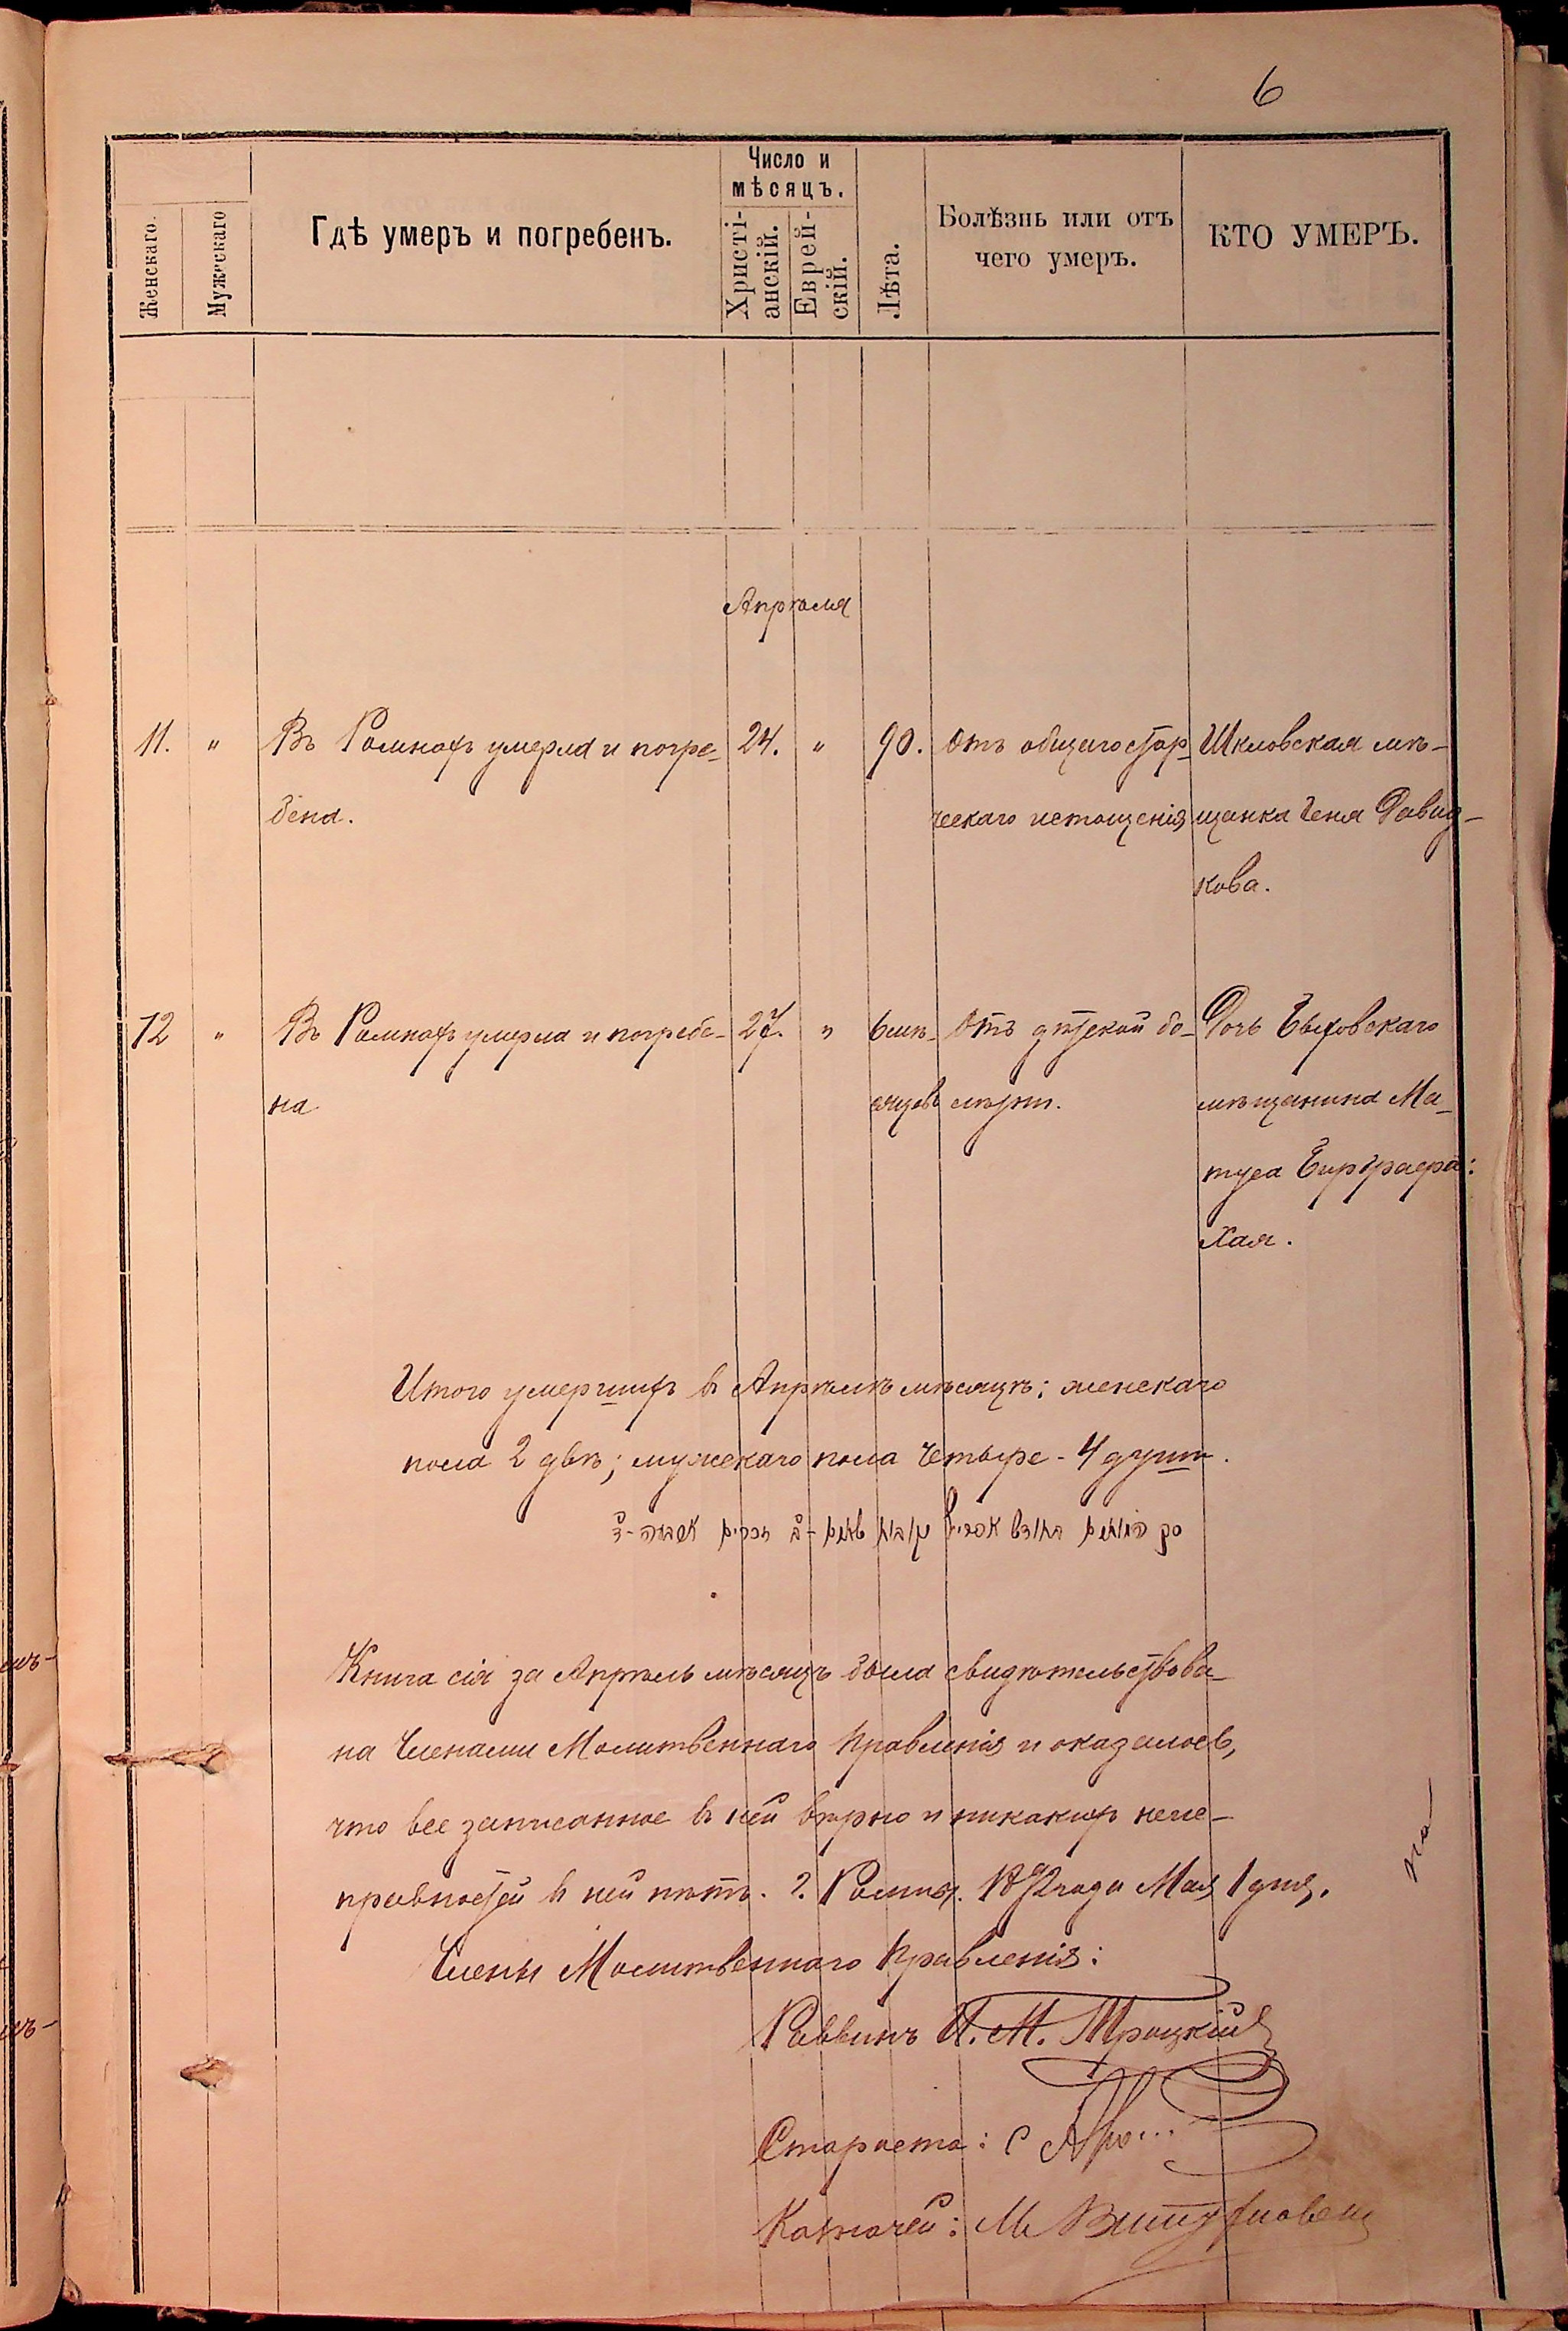 6
Женскаго.
Мужескаго
Гдѣ умеръ и погребенъ.
Число и
мѣсяцъ.
Христі-
анскій.
Еврей-
скій.
Лѣта.
Болѣзнь или отъ
чего умеръ.
КТО УМЕРЪ.
Апрѣля
11. " Въ Ромнахъ умерла и погре- 24. " 90. Отъ общаго стар- Шкловская мѣ-
бена. ческаго истощенія щанка Геня Давид-
кова.
12 " Въ Ромнахъ умерла и погребе- 27. " 6 мѣ- Отъ дѣтской бо- Дочь Быховскаго
на сяцевъ лѣзни. мѣщанина Ма-
туса
Хая.
Итого умершихъ въ Апрѣлѣ мѣсяцѣ: женскаго
пола 2 двѣ; мужскаго пола четыре - 4 души.
Книга сія за Апрѣль мѣсяцъ была свидѣтельствова-
на Членами Молитвеннаго Правленія и оказалось,
что все записанное въ ней вѣрно и никакихъ неис-
правностей въ ней нѣтъ. г. Ромны. года Мая 1 дня.
Члены Молитвеннаго Правленія:
Раввинъ М. Троцкій
Староста:
Казначей: М